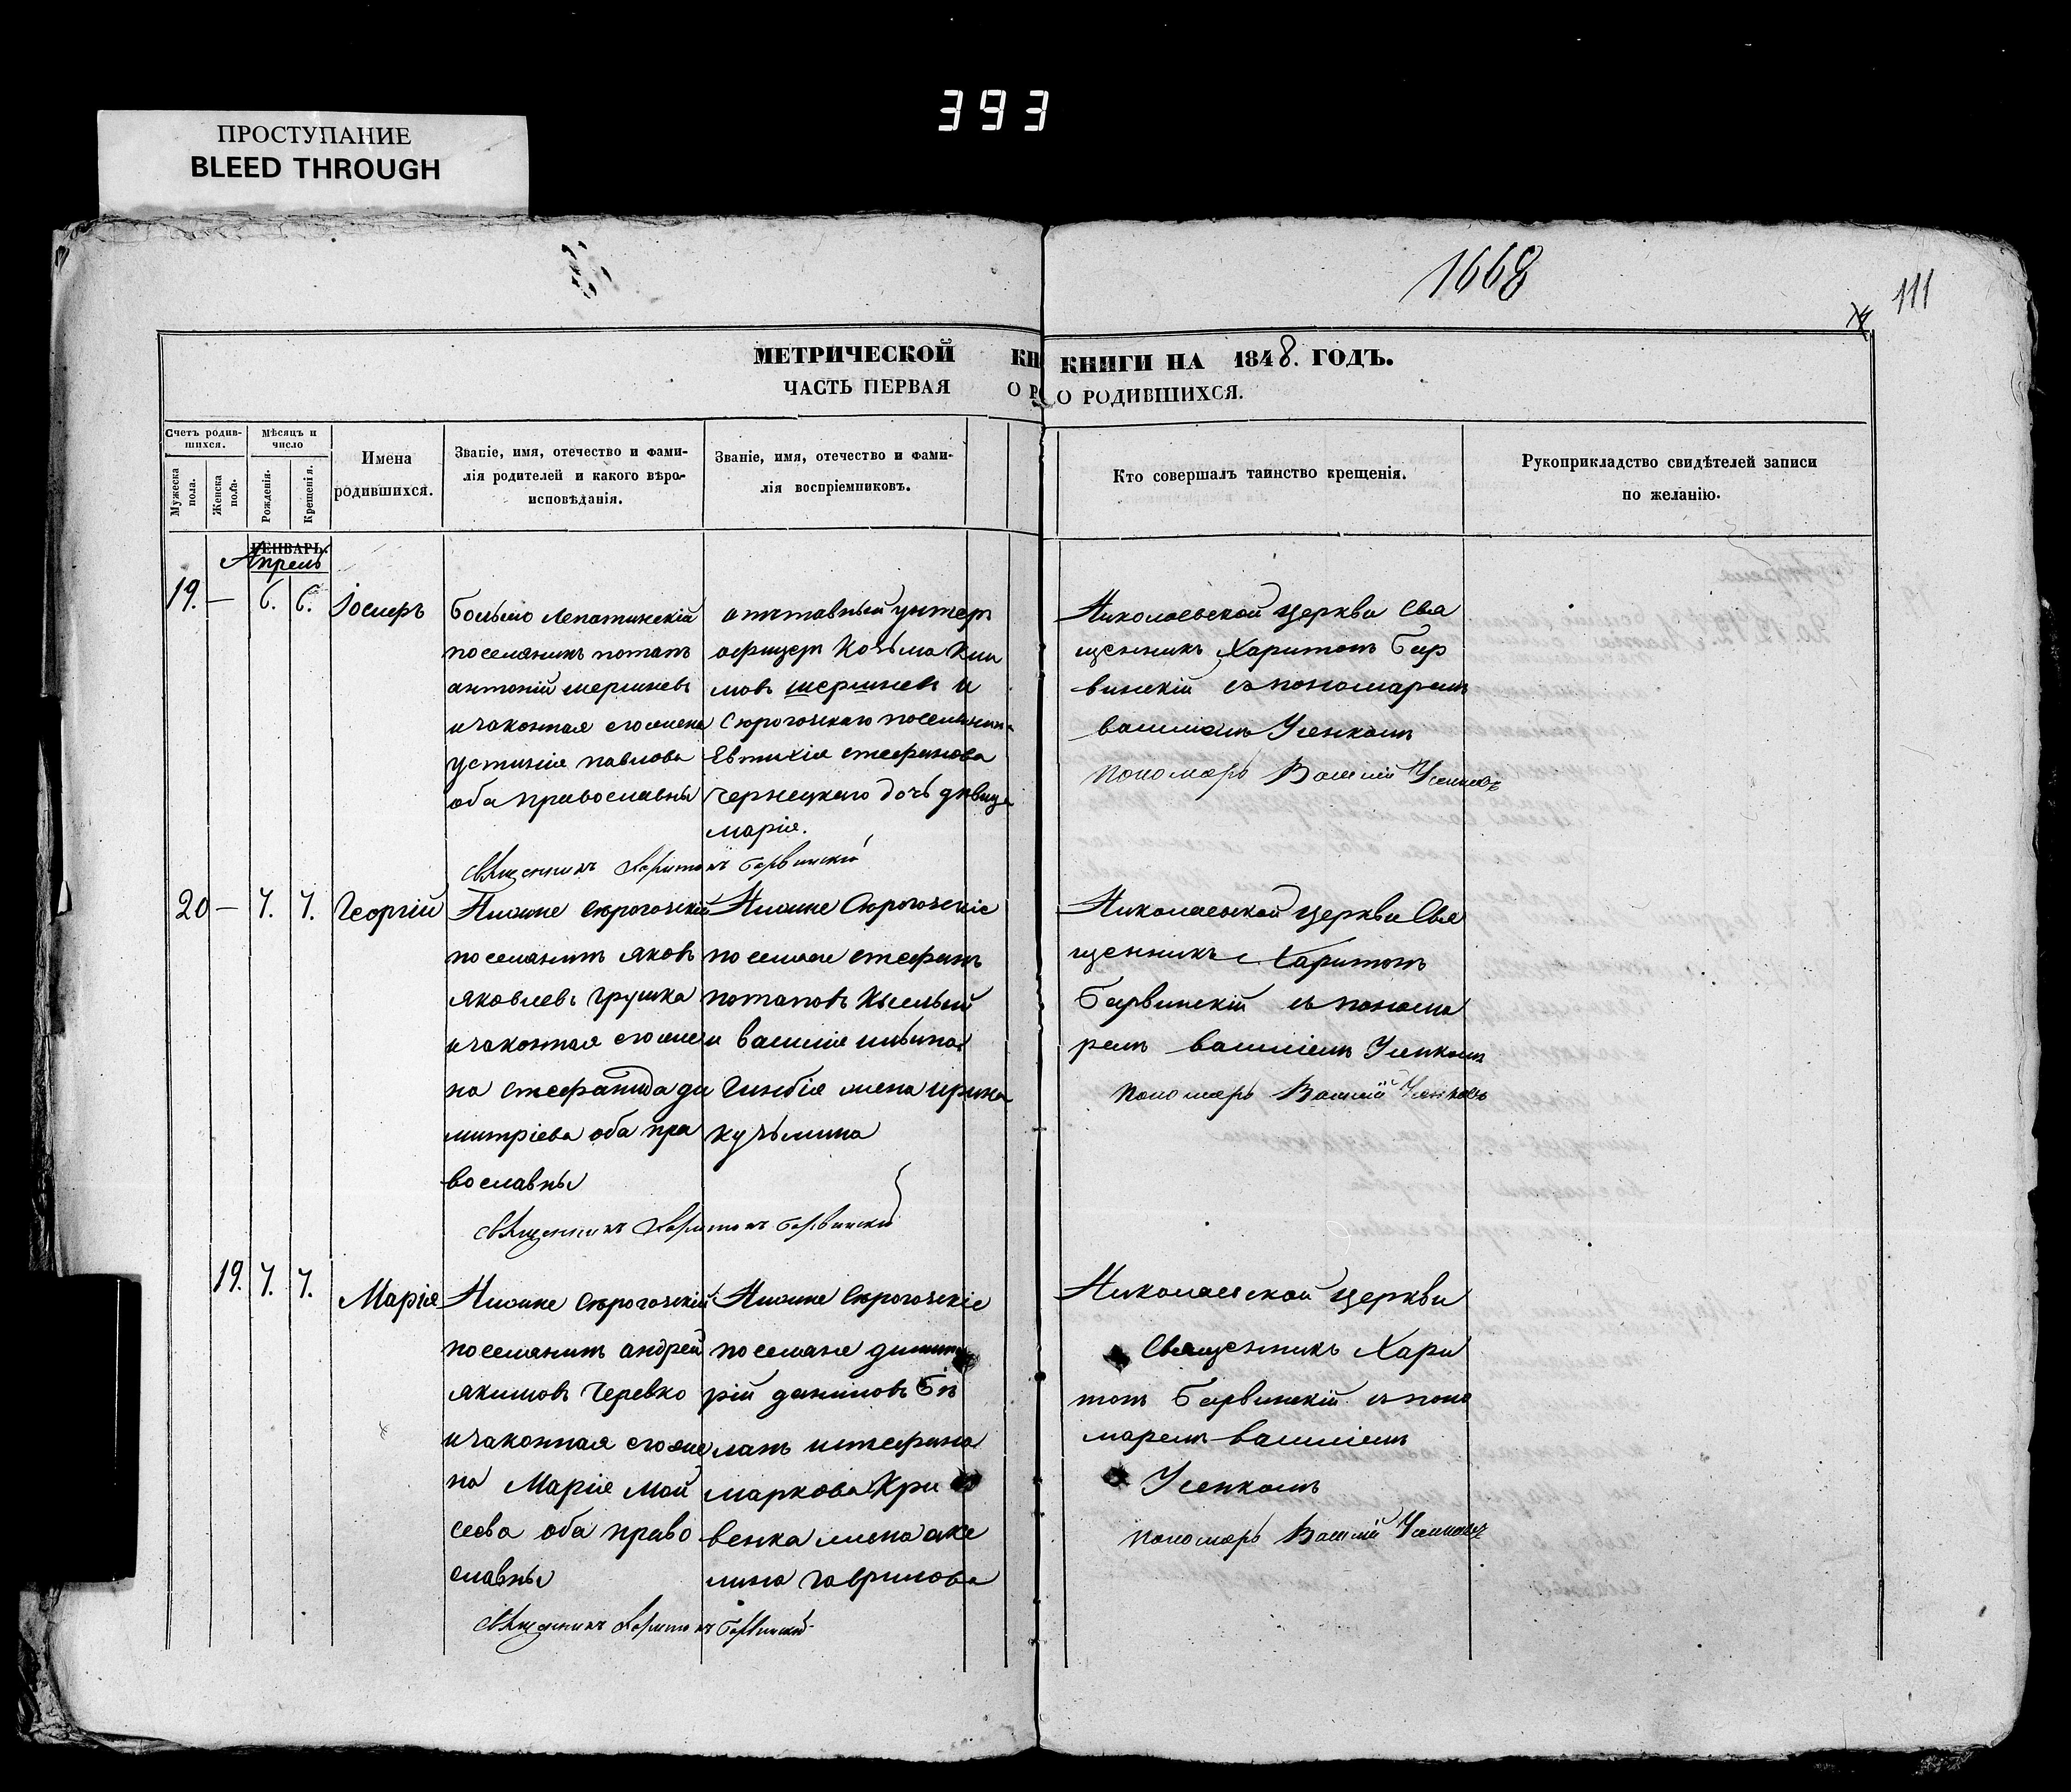 393
ПРОСТУПАНИЕ
BLEED THROUGH
1668
111
МЕТРИЧЕСКОЙ КН КНИГИ НА 1848. ГОДЪ.
ЧАСТЬ ПЕРВАЯ О Р О РОДИВШИХСЯ.
Счетъ родив-
шихся.
Мужеска
пола.
Женска
пола.
Мѣсяцъ и
число
Рожденія.
Крещенія.
Имена
родившихся.
Званіе, имя, отечество и фами-
лія родителей и какого вѣро-
исповѣданія.
Званіе, имя, отечество и фами-
лія воспріемниковъ.
Кто совершалъ таинство крещенія.
Рукоприкладство свидѣтелей записи
по желанію.
ГЕНВАРЬ.
Апрель
19. — 6. 6.
поселянинъ потапъ
антоній шершневъ
и законная его жена
устинія павлова
оба православны
отставный унтеръ
офицеръ Козьма
мовъ шершневъ и
Евтихія стефанова
чернецкаго дочь дѣвица
марія.
Николаевской церкви Свя
щенникъ Харитонъ Бар
винскій съ пономаремъ
Усенкомъ
пономарь Василій
священникъ Харитонъ Барвинскій
20 — 7. 7. Георгій
Нижне Сѣрогозскій
поселянинъ яковъ
яковлевъ грушка
и законная его же
на стефанида ди
митріева оба пра
вославны
Нижне Сѣрогозскіе
поселяне стефанъ
потаповъ
и василія
жена ирина
кузьмина
Николаевской церкви Свя
щенникъ Харитонъ
Барвинскій съ понома
ремъ василіемъ Усенкомъ
пономарь Василій
священникъ Харитонъ Барвинскій
19. 7. 7. Марія
Нижне Сѣрогозскій
поселянинъ андрей
якимовъ Черевко
и законная его же
на Марія Мой
сеева оба право
славны
Нижне Сѣрогозскіе
поселяне димит
рій даниловъ Бѣ
ланъ и стефана
маркова Кри
венка жена аке
лина гаврилова
Николаевской церкви
Священникъ Хари
тонъ Барвинскій съ поно
маремъ василіемъ
Усенкомъ
пономарь Василій
священникъ Харитонъ Барвинскій